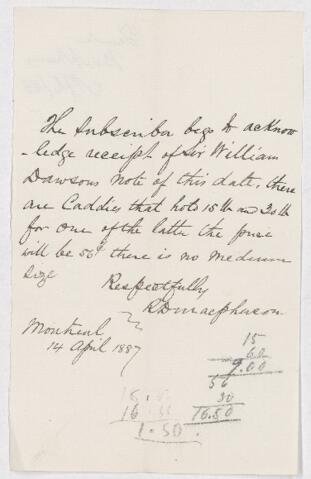 The Subscriber begs to acknow
-ledge receipt of Sir William
Dawsons note of this date, there
are Caddies that hols 15 lb and 30 lb
for one of the latter the price
will be 56¢ there is no medium
size
Respectfully
R D Macpherson
Montreal
14 April 1887
15
60
9.00
56
30
16.80
16.
1.50.